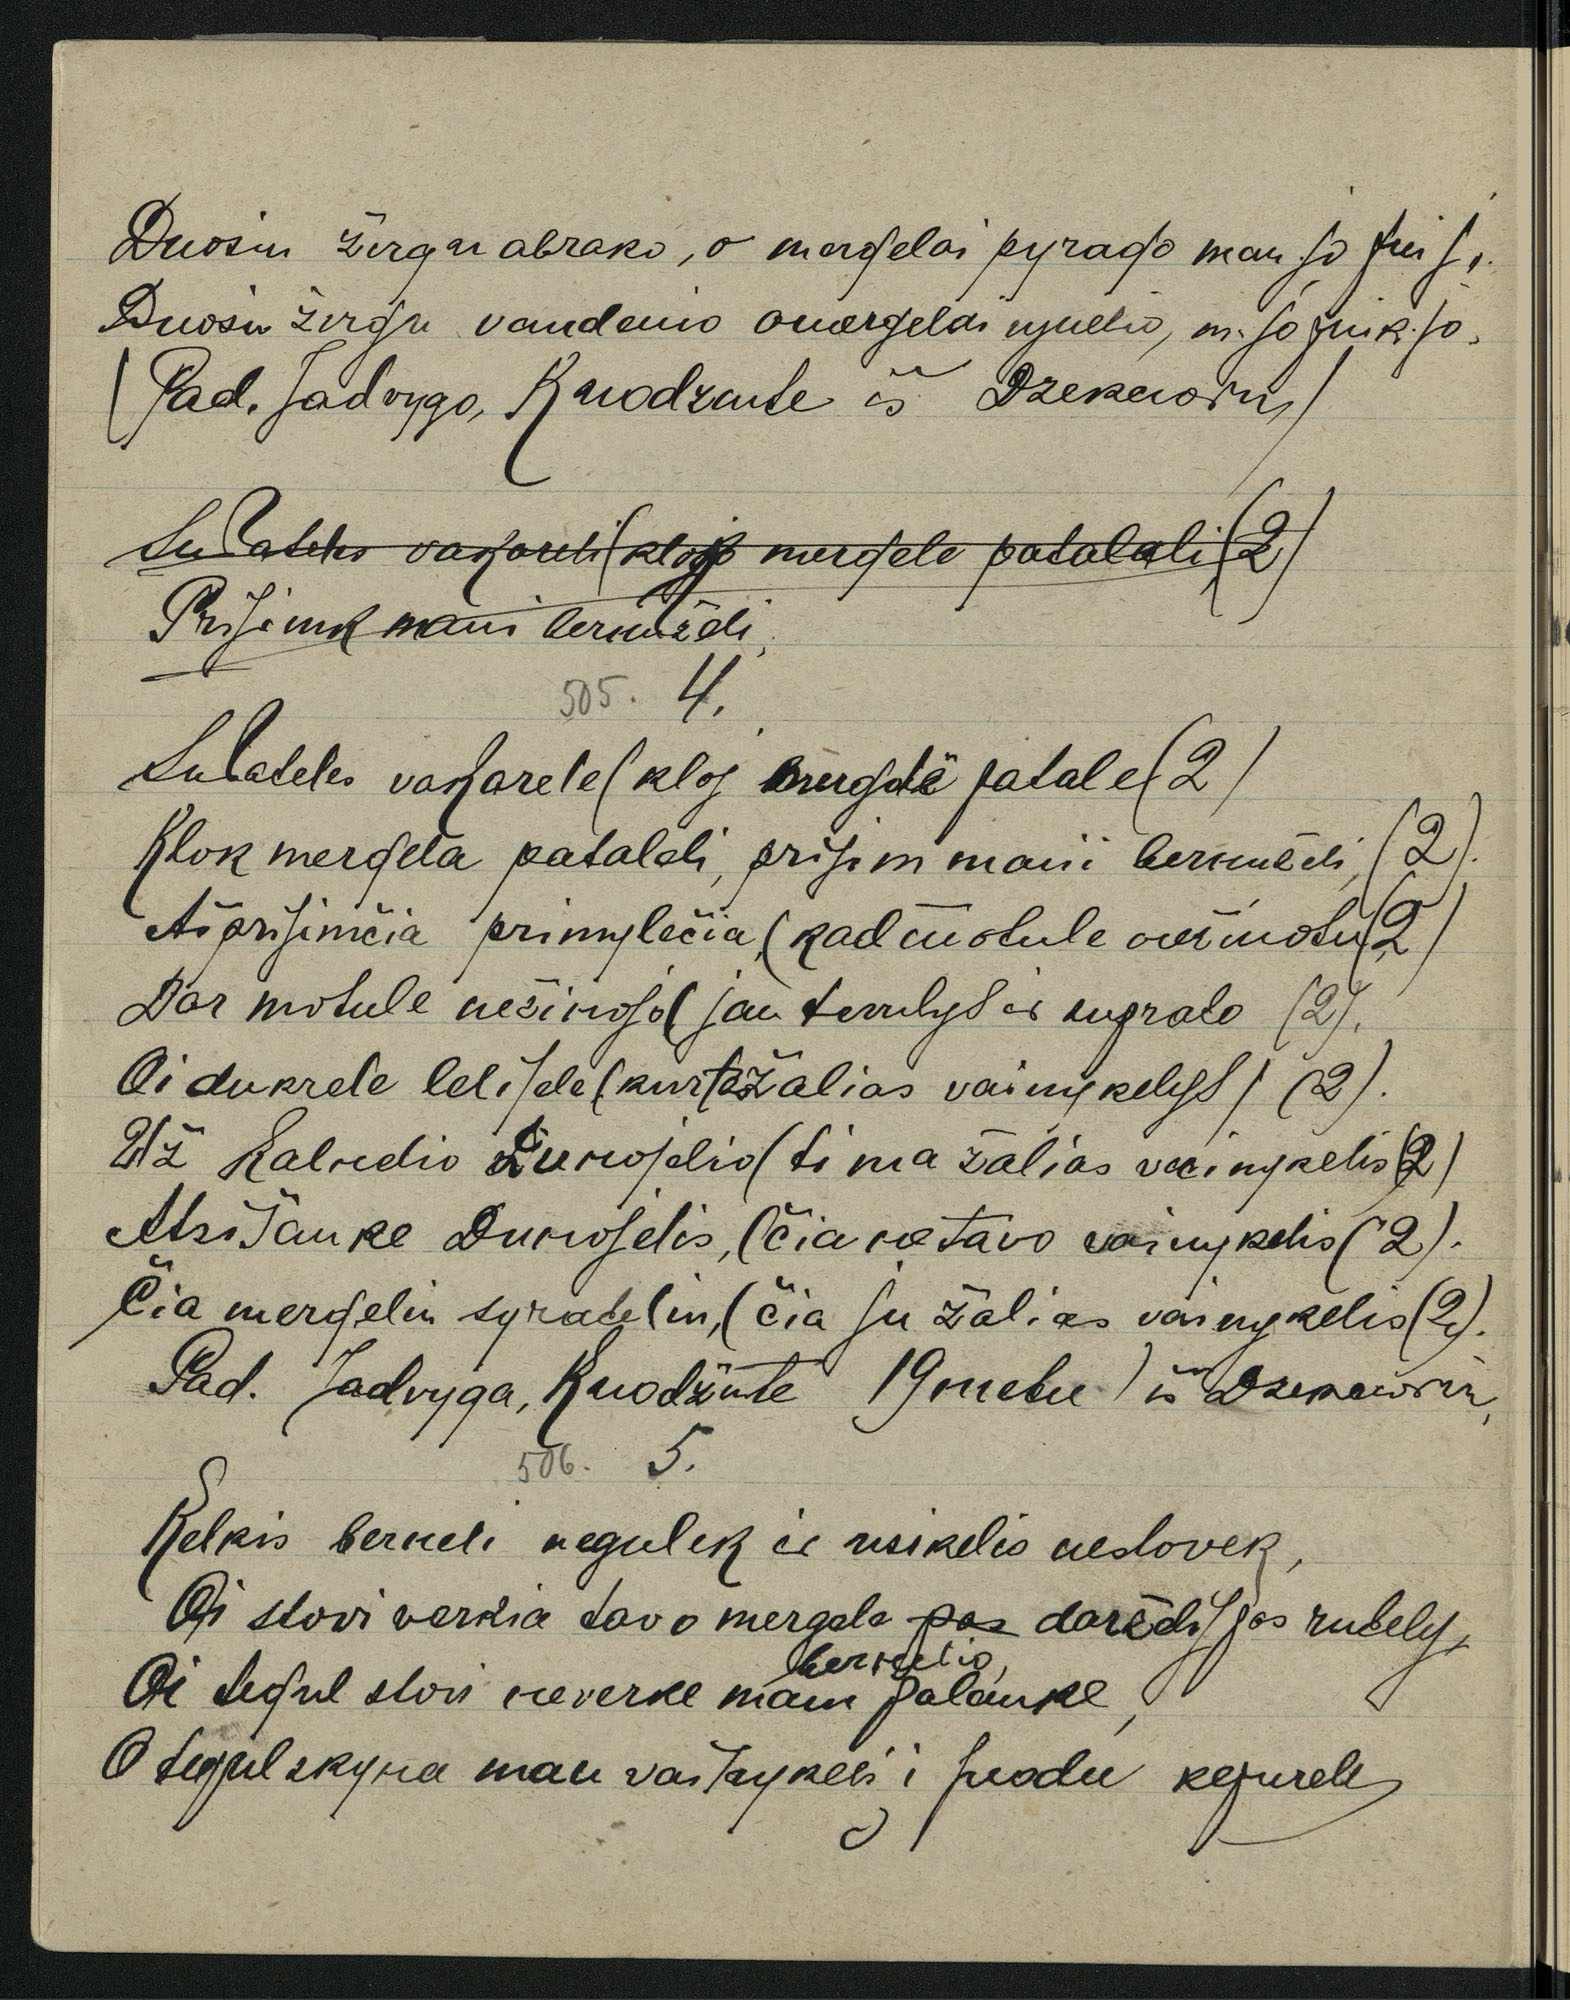 Duosiu žirgu abrako, o mergelai pyrago man jo
Duosiu žirgu vandenio o mergelai vynelio, m. jo puik. jo.
(Pad. Jadvyga, Knodzute iš
Subatelis vakareli (kloj mergele patalali (2)
Prisimk mani bernužėli
505. 4.
Subateles vakarele (kloj mergelė patale (2)
Klok mergela patalali, prisim mani bernužėli, (2).
Aš prisimčia primylėčia, (kad motule nežinotu (2)
Dar motule nežinojo (jau tevulys ir suprato (2).
Oi dukrele lelijele (kur tažalias vainykelys) (2).
Už kalnelio Dunojelio (ti ma žalias vainykelis (2)
Atsišauke Dunojelis, (čia ne tavo vainykelis (2).
Čia mergeliu syrateliu, (čia ju žalias vainykelis (2).
Pad. Jadvyga, Knodžiute 19 metu) iš
506. 5.
Kelkis berneli negulek ir usikelis nestovek,
Oi stovi verkia tavo mergele pas daržėly jos rutely,
Oi tegul stovi neverke mani palauke, bernelio,
O tegul skyna man vainykeli i juodu kepurele